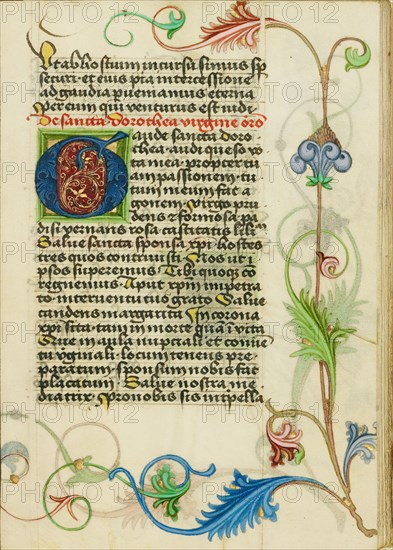 Ut ab hostium incursi simus sp
securi. et eius pia intercessione
ad gaudia pueniamus eterna
Per eum qui venturus est iudi
De sancta dorothea virgine oro
Gaude sancta doro
thea. audi queso vo
ta mea. propter tu
am passionem. tu
um meum fac a
gonem. Virgo pru
dens et formosa. pa
disi permans rosa castitatis
Salue sancta sponsa xpi. hostes
tres quos contristi. Nos ut i
psos superemus. Tibi quoque co
regnemus. Aput xpm impetra
to interuentu tuo grato Salue
candens margarita. In corona
xpi sita. tam in morte quam in vita
Duc in aula nupciale. et conui
tu virginali. locum teneus pre
paratum. sponsum nobis fac
placatum. Salue nostra me
diatrix. Pro nobis sis inpella